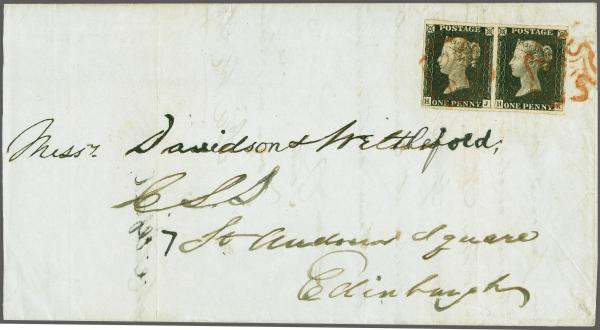 POSTAGE POSTAGE
H ONE PENNY J H ONE PENNY K
Messrs Davidson &
7 St Andrew Square
Edinburgh